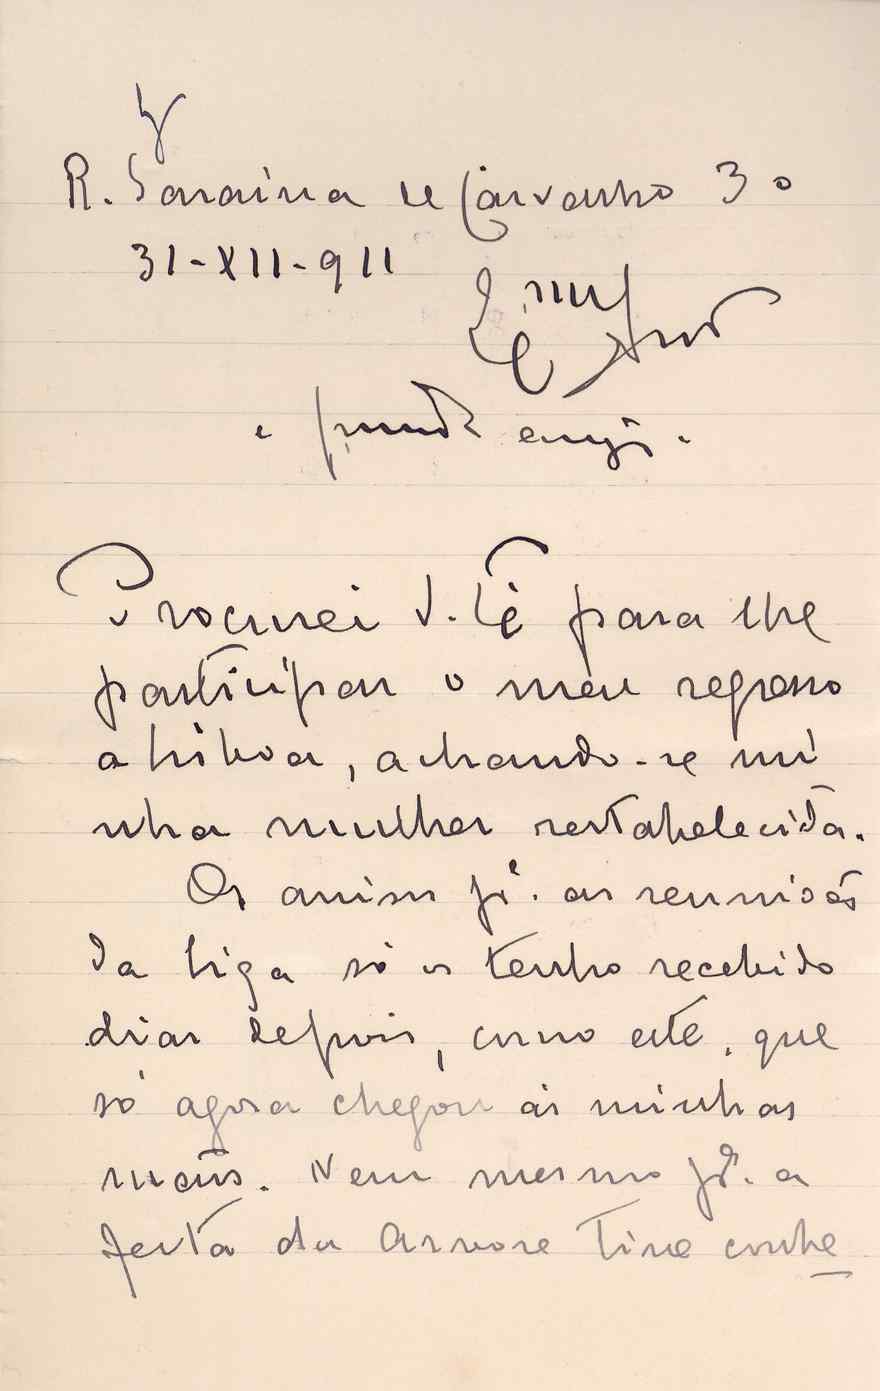 R. Saraiva de Carvalho 30
31-XII-911
Ex.mo Snr.
e prezado amigo.
Procurei V. Exª para lhe
participar o meu regresso
a Lisboa, achando-se mi
nha mulher restabelecida.
Os avisos pª. as reuniões
da Liga só os tenho recebido
dias depois, como este, que
só agora chegou ás minhas
mãos. Nem mesmo pª. a
festa da Arvore tive conhe